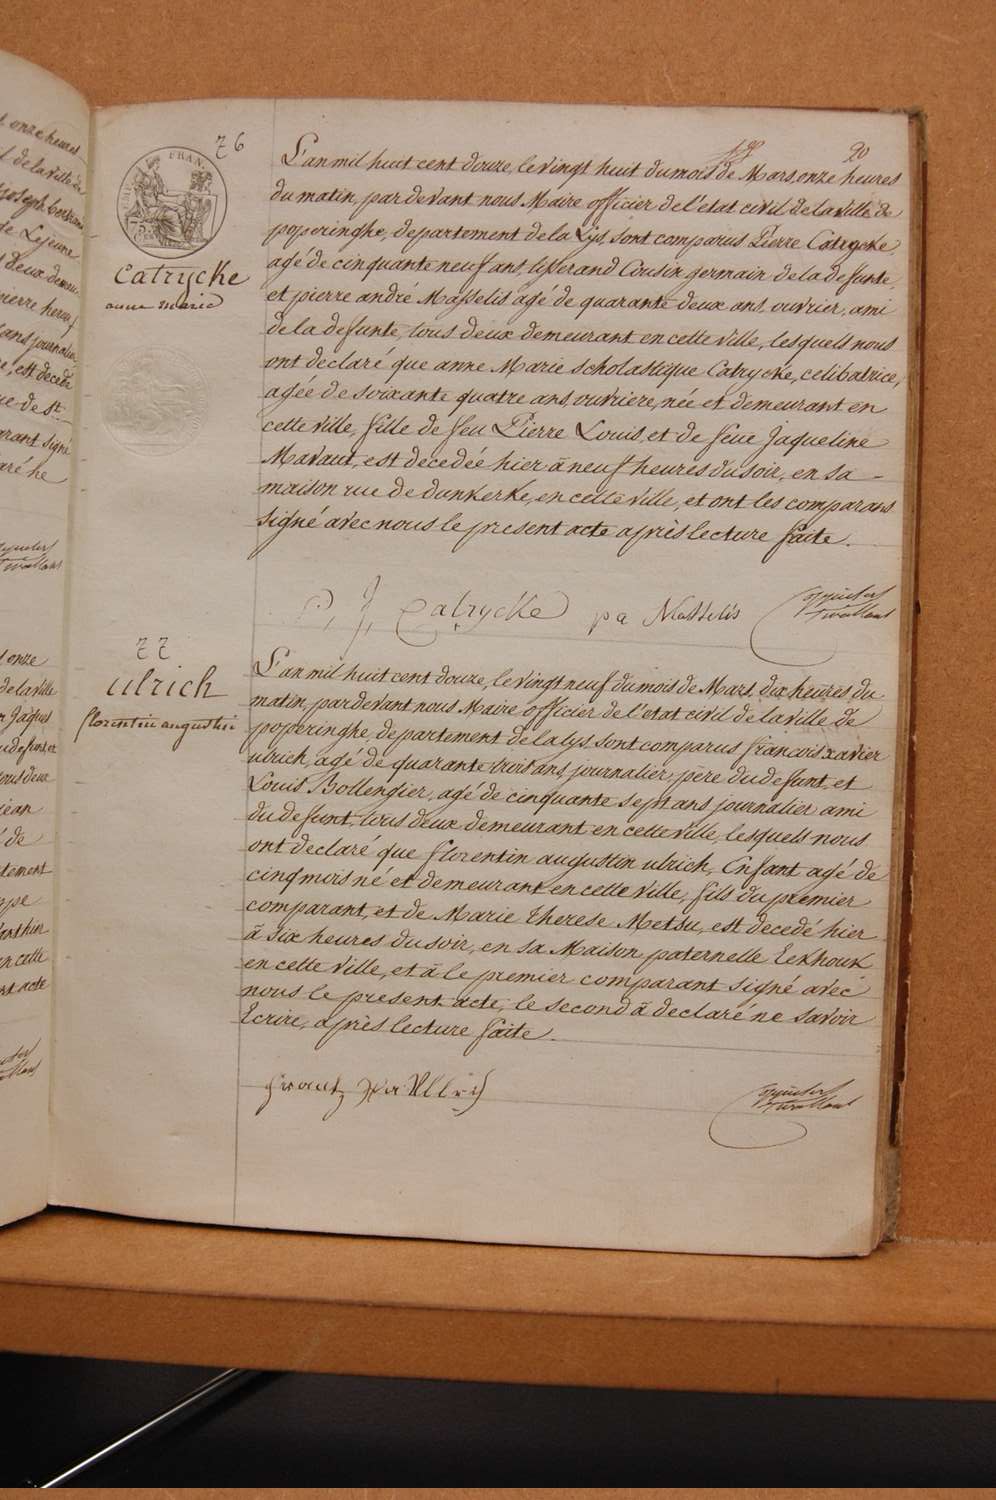 76
20
FRAN
Catrycke
anne marie
L'an mil huit cent douze, le vingt huit du mois de Mars, onze heures
du matin, par devant nous Maire officier de l'etat civil de la ville de
poperinghe, departement de la Lys, sont comparus Pierre Catrycke,
agé de cinquante neuf ans, tisserand Cousin germain de la defunte,
et pierre andré Masselis agé de quarante deux ans, ouvrier, ami
de la defunte, tous deux demeurant en cette ville, lesquels nous
ont declaré que anne Marie scholastique Catrycke, celibatrice,
agée de soixante quatre ans, ouvriere, née et demeurant en
cette ville, fille de feu Pierre Louis, et de feue Jaqueline
Mavaut, est decedée hier à neuf heures du soir, en sa
maison rue de dunkerke, en cette ville, et ont les comparans
signé avec nous le present acte après lecture faite.
P. J. Catrycke pa Masselis
77
ulrich
florentin augustin
L'an mil huit cent douze, le vingt neuf du mois de Mars, dix heures du
matin, par devant nous Maire officier de l'etat civil de la ville de
poperinghe, departement de la lys, sont comparus francois xavier
ulrich, agé de quarante trois ans, journalier, père du defunt, et
Louis Bollengier, agé de cinquante sept ans, journalier ami
du defunt, tous deux demeurant en cette ville, lesquels nous
ont declaré que florentin augustin ulrich, Enfant agé de
cinq mois né et demeurant en cette ville, fils du premier
comparant, et de Marie Therese Metsu, est decedé hier
à six heures du soir, en sa Maison paternelle Eekhouk
en cette ville, et à le premier comparant signé avec
nous le present acte, le second à declaré ne savoir
Ecrire, après lecture faite.